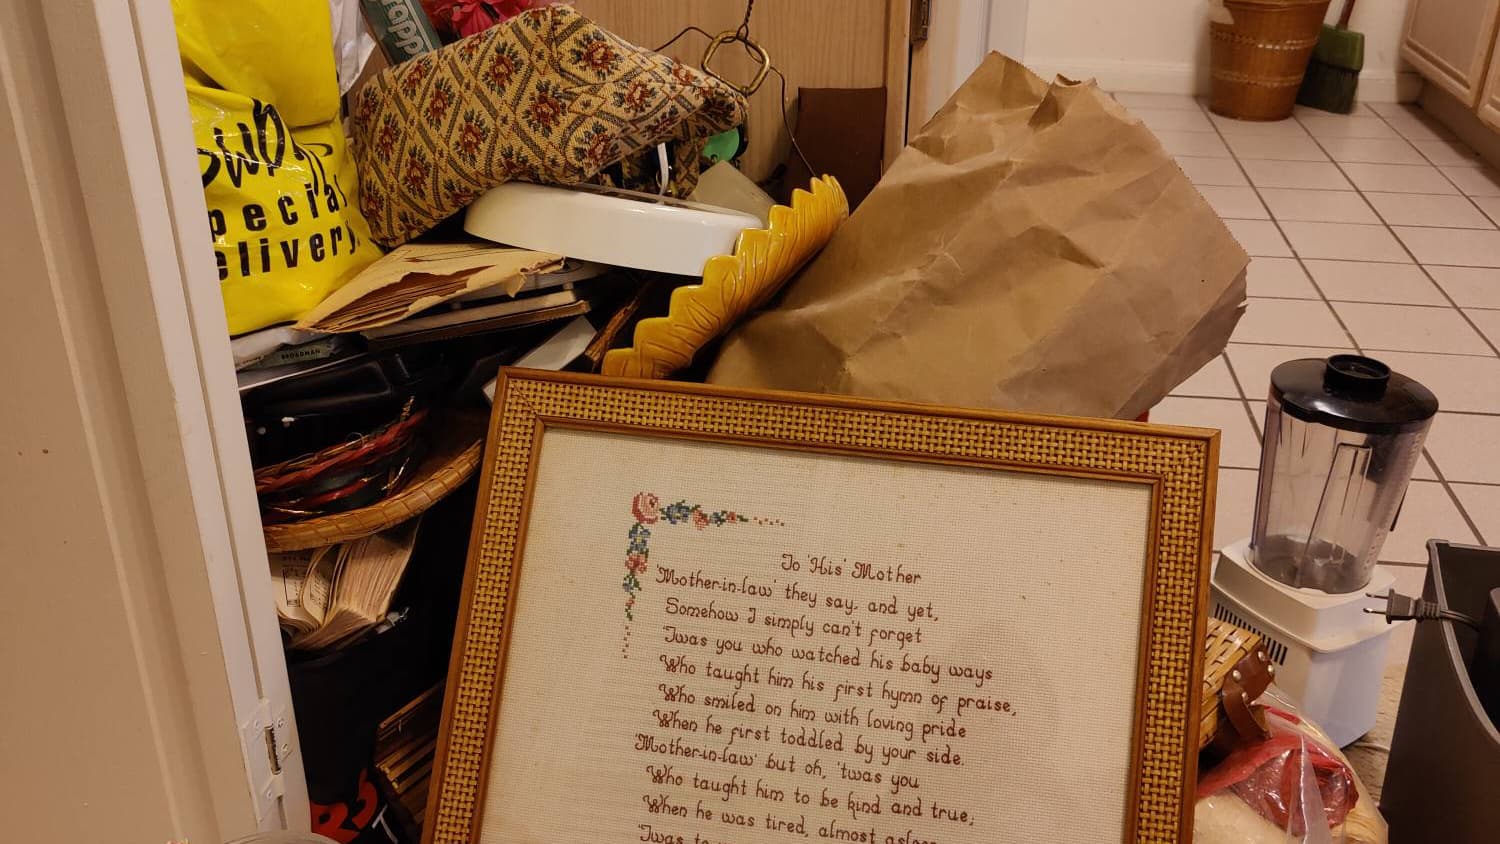 pecial
elivery
BROADMAN
To 'His' Mother
'Mother-in-law' they say, and yet,
Somehow I simply can't forget
'Twas you who watched his baby ways
Who taught him his first hymn of praise,
Who smiled on him with loving pride
When he first toddled by your side.
'Mother-in-law' but oh, 'twas you
Who taught him to be kind and true;
When he was tired, almost asleep
'Twas